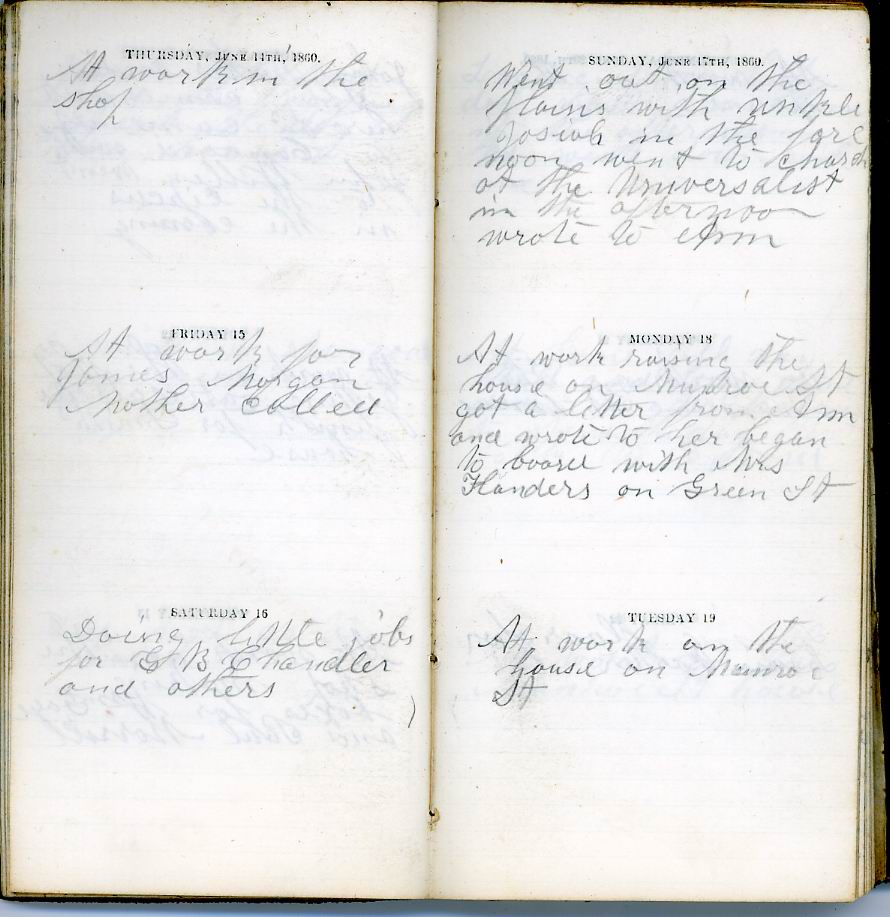 THURSDAY, JUNE 14TH, 1860.
At work in the
shop
FRIDAY 15
At work for
James Morgan
Mother Called
SATURDAY 16
Doing little jobs
for G B Chandler
and others
SUNDAY, JUNE 17TH, 1860.
Went out on the
plains with Unkle
Josiah in the fore
noon went to church
at the Universalist
in the afternoon
wrote to Ann
MONDAY 18
At work raising the
house on Munroe St
got a letter from Ann
and wrote to her began
to board with Mrs
Flanders on Green St
TUESDAY 19
At work on the
house on Munroe
St